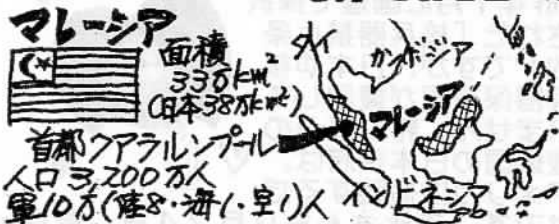 マレーシア
面積
33万km²
(日本38万km²)
首都クアラルンプール
人口3,200万人
軍10万(陸8・海1・空1)人
タイ
カンボジア
マレーシア
インドネシア